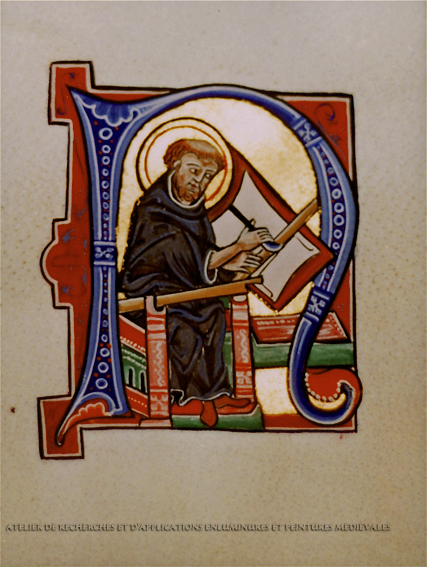 ATELIER DE RECHERCHES ET D'APPLICATIONS ENLUMINURES ET PEINTURES MEDIEVALES